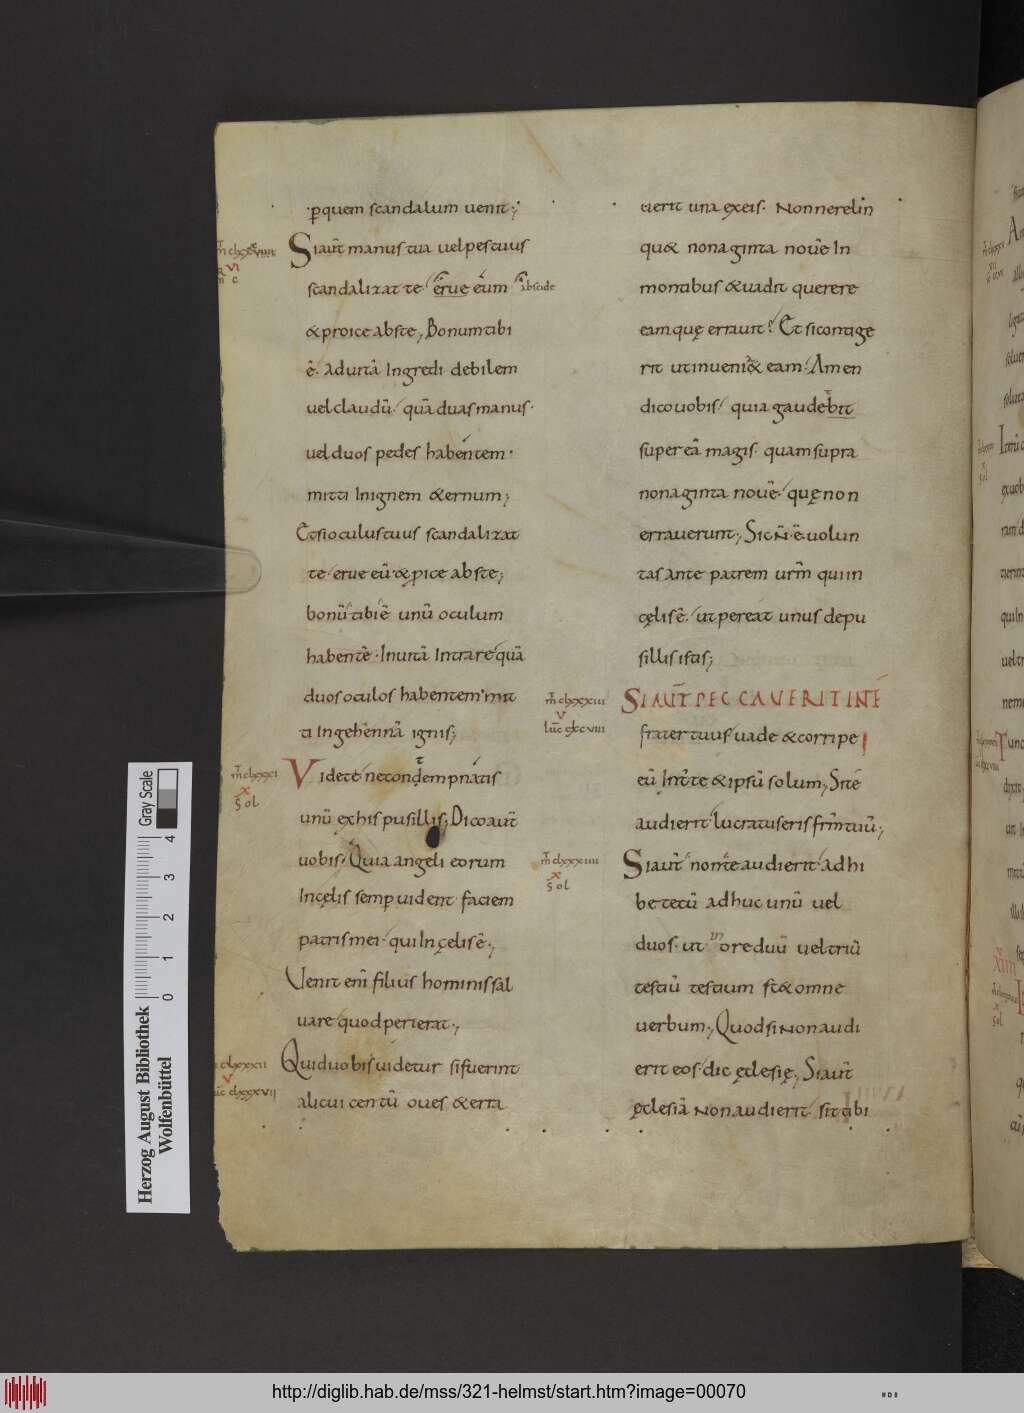 ꝑquem scandalum uenit;
Siaut̄ manus tua uel pes tuus
scandalizat te erue eum abscide
& proice abs te; Bonum tibi
ē. Ad uitā Ingredi debilem
uel claudū. quā duas manus.
uel duos pedes habentem.
mitti In ignem &ernum;
Et si oculus tuus scandalizat
te. erue eū. & ꝓice abs te;
bonū tibi ē unū oculum
habentē. In uitā Intrare quā
duos oculos habentem mit
ti In gehennā ignis;
Videte ne condempnatis
unū ex his pusillis; Dico aut̄
uobis. Quia angeli eorum
In cęlis semꝑ uident faciem
patris mei. qui In cęlis ē.;
Venit eni filius hominis sal
uare quod perierat.;
Quid uobis uidetur si fuerint
alicui centū oues & erra
uerit una ex eis. Non ne relin
qu& nonaginta nouē In
montibus & uadit querere
eam quę errauit? Et si contige
rit ut inueni& eam. Amen
dico uobis. quia gaudebit
super eā magis. quam supra
nonaginta nouē. quę non
errauerunt; Sic N̄. ē uolun
tas ante patrem ur̄m qui in
cęlis ē. ut pereat unus de pu
sillis istis;
SI AUT̄ PECCAVERIT IN TE
frater tuus uade & corripe
eū Int̄ te & ipsū solum; Si te
audierit lucratus eris fr̄m tuū;
Si aut̄ non te audierit adhi
be tecū adhuc unū uel
duos. ut in ore duū uel triū
testiū testium st& omne
uerbum; Quod si Non audi
erit eos. dic ęclesię; Si aut̄
ęclesiā Non audierit. sit tibi
Gray Scale
0 1 2 3 4
Herzog August Bibliothek
Wolfenbüttel
http://diglib.hab.de/mss/321-helmst/start.htm?image=00070